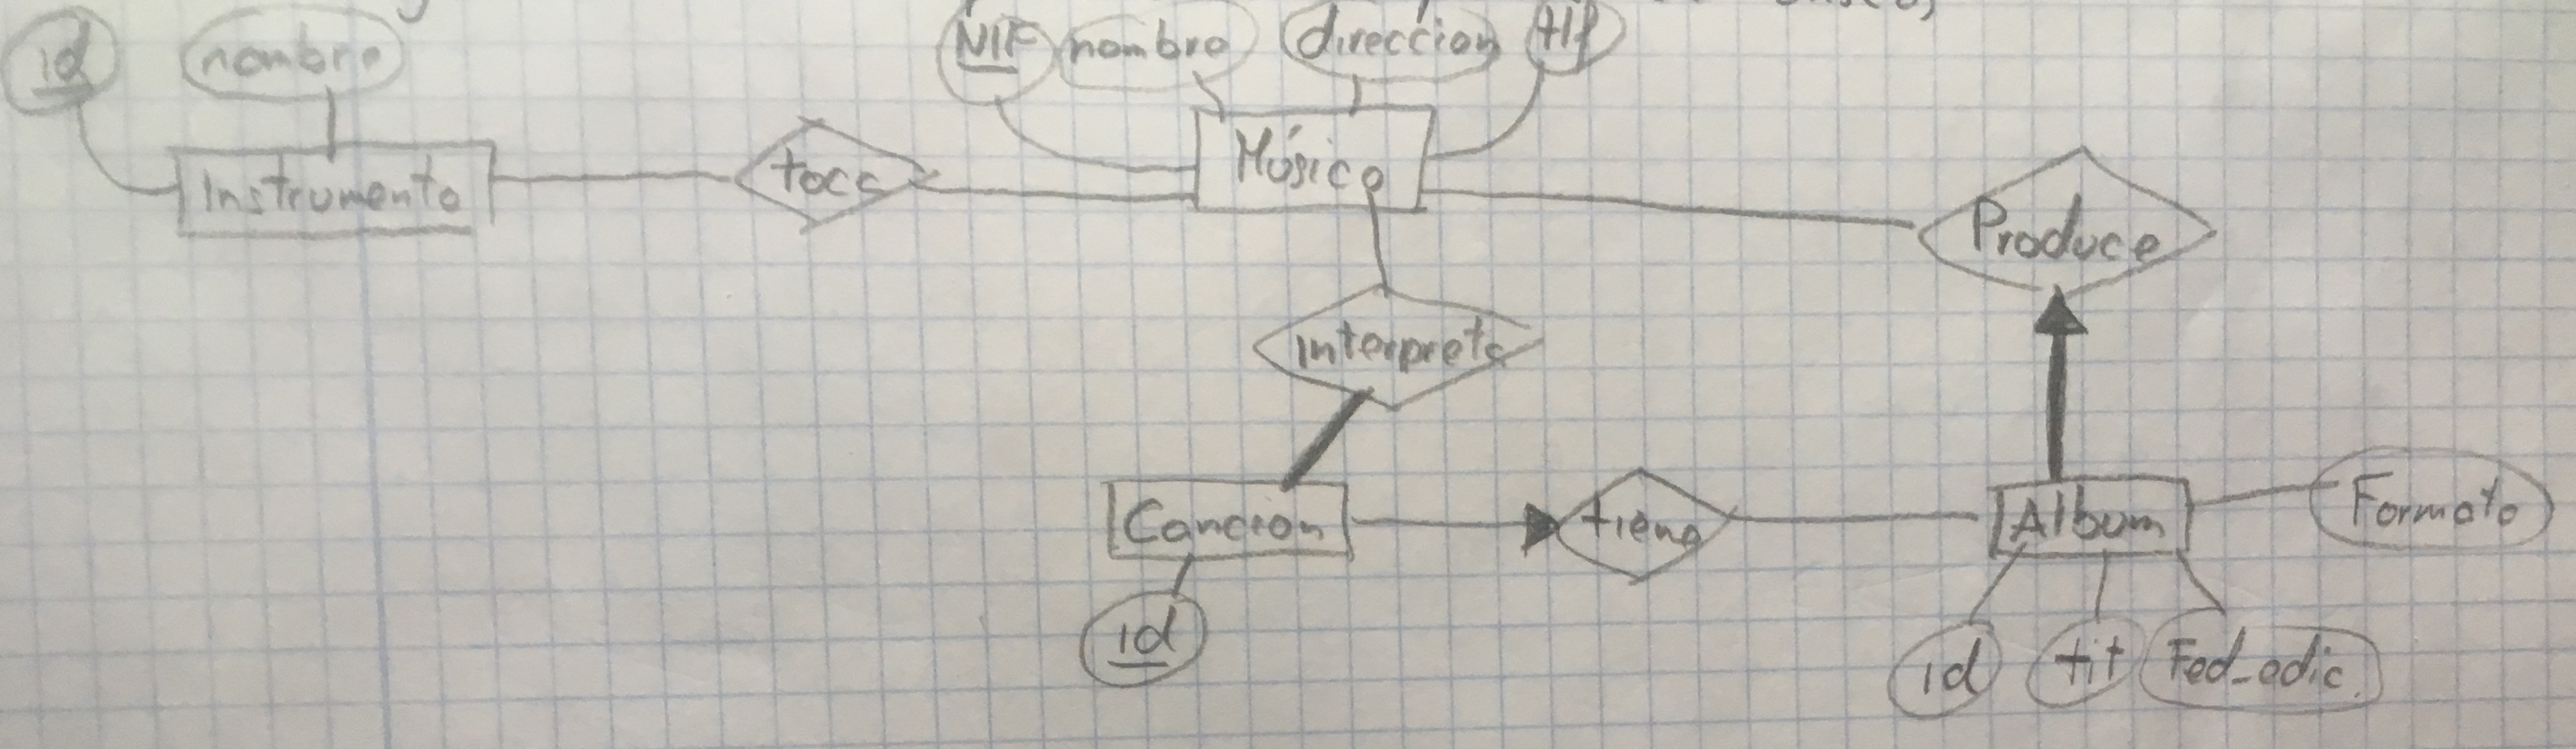 id nombre NIF nombre direccion tlf
Instrumento toca Músico Produce
Interpreta
Cancion tiene Album Formato
id id tit Fed_edic.